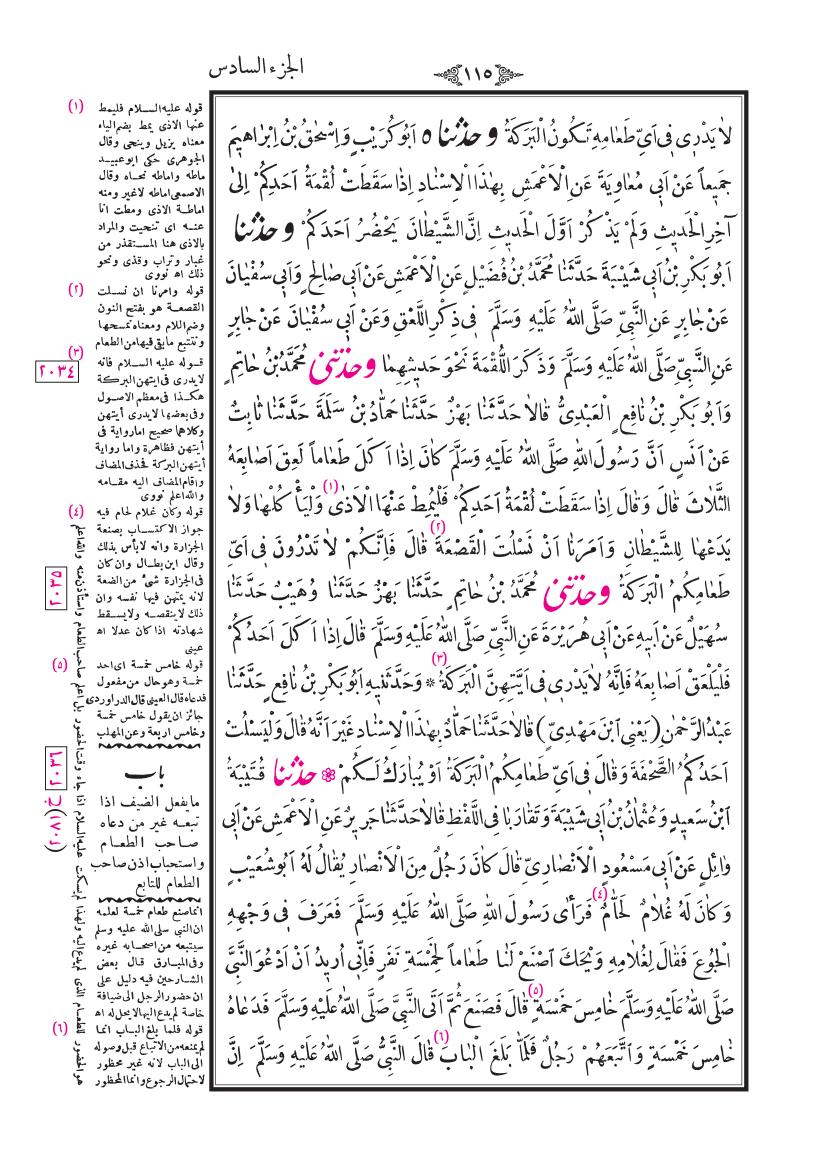 ١١٥
الجزء السادس
لَا يَدْرِى فِى اَىِّ طَعَامِهِ تَكُونُ الْبَرَكَةُ وحدثنا ٥ اَبُو كُرَيْبٍ وَاِسْحٰقُ بْنُ اِبْرَاهِيمَ
جَمِيعاً عَنْ اَبِى مُعَاوِيَةَ عَنِ الْاَعْمَشِ بِهٰذَا الْاِسْنَادِ اِذَا سَقَطَتْ لُقْمَةُ اَحَدِكُمْ اِلىٰ
آخِرِ الْحَدِيثِ وَلَمْ يَذْكُرْ اَوَّلَ الْحَدِيثِ اِنَّ الشَّيْطَانَ يَحْضُرُ اَحَدَكُمْ وحدثنا
اَبُو بَكْرِ بْنُ اَبِى شَيْبَةَ حَدَّثَنَا مُحَمَّدُ بْنُ فُضَيْلٍ عَنِ الْاَعْمَشِ عَنْ اَبِى صَالِحٍ وَاَبِى سُفْيَانَ
عَنْ جَابِرٍ عَنِ النَّبِىِّ صَلَّى اللهُ عَلَيْهِ وَسَلَّمَ فِى ذِكْرِ اللَّعْقِ وَعَنْ اَبِى سُفْيَانَ عَنْ جَابِرٍ
عَنِ النَّبِىِّ صَلَّى اللهُ عَلَيْهِ وَسَلَّمَ وَذَكَرَ اللُّقْمَةَ نَحْوَ حَدِيثِهِمَا وحدثنى مُحَمَّدُ بْنُ حَاتِمٍ
وَاَبُو بَكْرِ بْنُ نَافِعٍ الْعَبْدِىُّ قَالَا حَدَّثَنَا بَهْزٌ حَدَّثَنَا حَمَّادُ بْنُ سَلَمَةَ حَدَّثَنَا ثَابِتٌ
عَنْ اَنَسٍ اَنَّ رَسُولَ اللهِ صَلَّى اللهُ عَلَيْهِ وَسَلَّمَ كَانَ اِذَا اَكَلَ طَعَاماً لَعِقَ اَصَابِعَهُ
الثَّلَاثَ قَالَ وَقَالَ اِذَا سَقَطَتْ لُقْمَةُ اَحَدِكُمْ (١) فَلْيُمِطْ عَنْهَا الْاَذٰى وَلْيَأْكُلْهَا وَلَا
يَدَعْهَا لِلشَّيْطَانِ وَاَمَرَنَا اَنْ نَسْلُتَ الْقَصْعَةَ (٢) قَالَ فَاِنَّكُمْ لَا تَدْرُونَ فِى اَىِّ
طَعَامِكُمُ الْبَرَكَةُ وحدثنى مُحَمَّدُ بْنُ حَاتِمٍ حَدَّثَنَا بَهْزٌ حَدَّثَنَا وُهَيْبٌ حَدَّثَنَا
سُهَيْلٌ عَنْ اَبِيهِ عَنْ اَبِى هُرَيْرَةَ عَنِ النَّبِىِّ صَلَّى اللهُ عَلَيْهِ وَسَلَّمَ قَالَ اِذَا اَكَلَ اَحَدُكُمْ
فَلْيَلْعَقْ اَصَابِعَهُ فَاِنَّهُ لَا يَدْرِى فِى اَيَّتِهِنَّ الْبَرَكَةُ (٣) * وَحَدَّثَنِيهِ اَبُو بَكْرِ بْنُ نَافِعٍ حَدَّثَنَا
عَبْدُ الرَّحْمٰنِ (يَعْنِى ابْنَ مَهْدِىٍّ) قَالَا حَدَّثَنَا حَمَّادٌ بِهٰذَا الْاِسْنَادِ غَيْرَ اَنَّهُ قَالَ وَلْيَسْلُتْ
اَحَدُكُمُ الصَّحْفَةَ وَقَالَ فِى اَىِّ طَعَامِكُمُ الْبَرَكَةُ اَوْ يُبَارَكُ لَكُمْ * حدثنا قُتَيْبَةُ
ابْنُ سَعِيدٍ وَعُثْمَانُ بْنُ اَبِى شَيْبَةَ وَتَقَارَبَا فِى اللَّفْظِ قَالَا حَدَّثَنَا جَرِيرٌ عَنِ الْاَعْمَشِ عَنْ اَبِى
وَائِلٍ عَنْ اَبِى مَسْعُودٍ الْاَنْصَارِىِّ قَالَ كَانَ رَجُلٌ مِنَ الْاَنْصَارِ يُقَالُ لَهُ اَبُو شُعَيْبٍ
وَكَانَ لَهُ غُلَامٌ لَحَّامٌ (٤) فَرَأٰى رَسُولَ اللهِ صَلَّى اللهُ عَلَيْهِ وَسَلَّمَ فَعَرَفَ فِى وَجْهِهِ
الْجُوعَ فَقَالَ لِغُلَامِهِ وَيْحَكَ اصْنَعْ لَنَا طَعَاماً لِخَمْسَةِ نَفَرٍ فَاِنِّى اُرِيدُ اَنْ اَدْعُوَ النَّبِىَّ
صَلَّى اللهُ عَلَيْهِ وَسَلَّمَ خَامِسَ خَمْسَةٍ (٥) قَالَ فَصَنَعَ ثُمَّ اَتَى النَّبِىَّ صَلَّى اللهُ عَلَيْهِ وَسَلَّمَ فَدَعَاهُ
خَامِسَ خَمْسَةٍ وَاتَّبَعَهُمْ رَجُلٌ فَلَمَّا بَلَغَ الْبَابَ (٦) قَالَ النَّبِىُّ صَلَّى اللهُ عَلَيْهِ وَسَلَّمَ اِنَّ
(١) قوله عليه السلام فليمط
عنها الاذى يمط بضم الياء
معناه يزيل وينحى وقال
الجوهرى حكى ابو عبيد
ماطه واماطه نحاه وقال
الاصمعى اماطه لا غير ومنه
اماطة الاذى ومطت انا
عنه اى تنحيت والمراد
بالاذى هنا المستقذر من
غبار وتراب وقذى ونحو
ذلك اه نووى
(٢) قوله وامرنا ان نسلت
القصعة هو بفتح النون
وضم اللام ومعناه نمسحها
ونتتبع ما بقى فيها من الطعام
(٣) قوله عليه السلام فانه
لا يدرى فى ايتهن البركة
هكذا فى معظم الاصول
وفى بعضها لا يدرى أيتهن
وكلاهما صحيح اما رواية فى
أيتهن فظاهرة واما رواية
أيتهن البركة فحذف المضاف
واقام المضاف اليه مقامه
والله اعلم نووى
(٤) قوله وكان غلام لحام فيه
جواز الاكتساب بصنعة
الجزارة وانه لا بأس بذلك
وقال ابن بطال وان كان
فى الجزارة شئ من الضعة
لانه يمتهن فيها نفسه وان
ذلك لا ينقصه ولا يسقط
شهادته اذا كان عدلا اه
عينى
(٥) قوله خامس خمسة اى احد
خمسة وهو حال من مفعول
فدعاه قال العينى قال الدراوردى
جائز ان يقول خامس خمسة
وخامس اربعة وعن المهلب
باب
ما يفعل الضيف اذا
تبعه غير من دعاه
صاحب الطعام
واستحباب اذن صاحب
الطعام للتابع
انما صنع طعام خمسة لعلمه
ان النبى صلى الله عليه وسلم
سيتبعه من اصحابه غيره
وفى المبارق قال بعض
الشارحين فيه دليل على
ان حضور الرجل الى ضيافة
خاصة لم يدع اليها لا يحل له اه
(٦) قوله فلما بلغ الباب انما
لم يمنعه من الاتباع قبل وصوله
الى الباب لانه غير محظور
لاحتمال الرجوع وانما المحظور
هو الحضور للطعام الذى لم يدع اليه ولهذا لم يسكت عليه السلام اذا جاء وقت الحضور بل اعلم صاحب الطعام واستأذن منه والله اعلم
٢٠٣٤
٢٠٣٥
٢٠٣٦
ج(١٧٠٢)